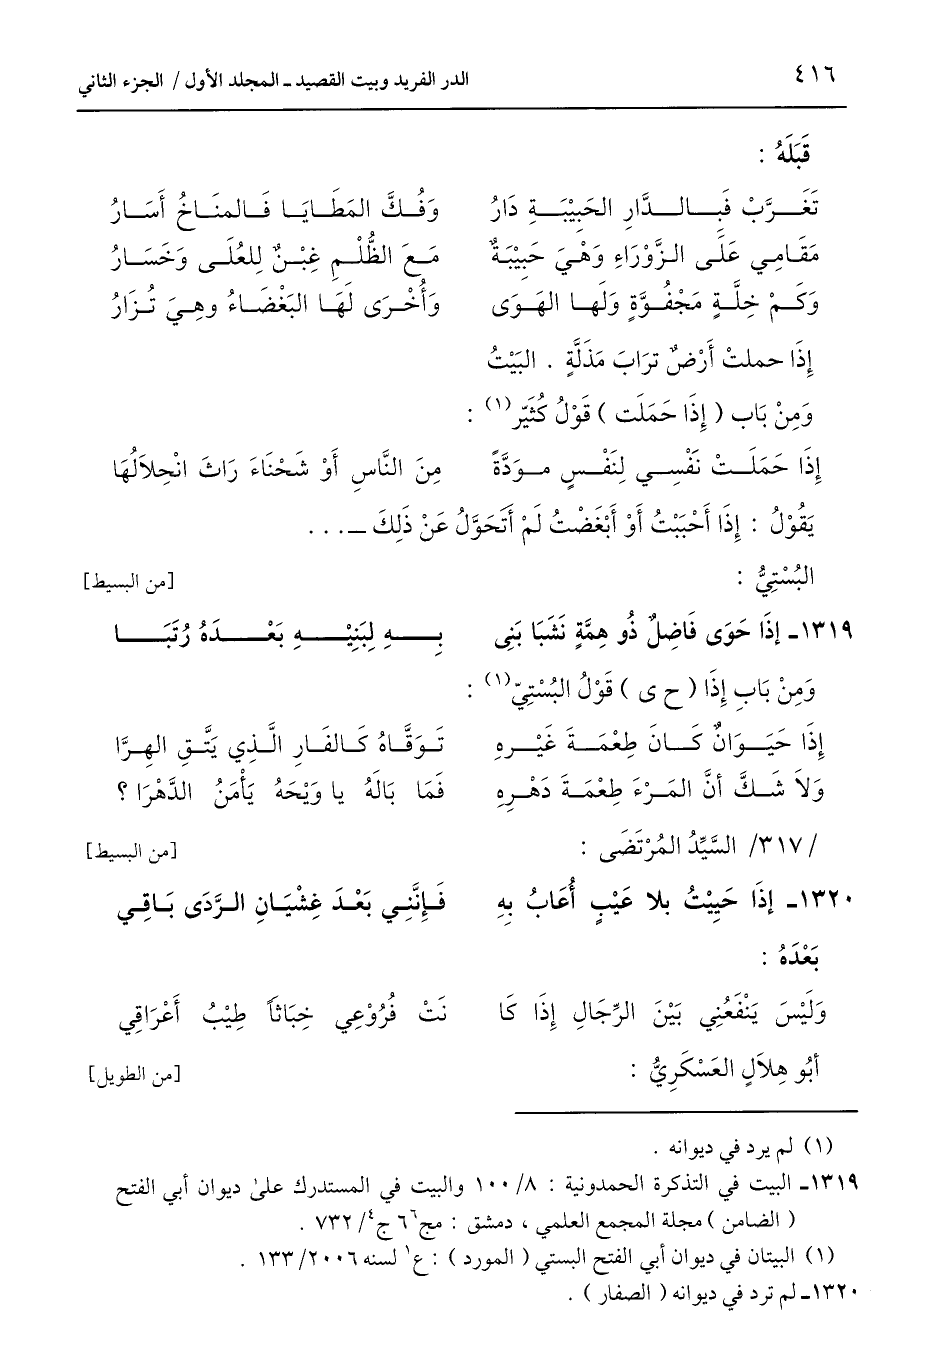 ٤١٦ الدر الفريد وبيت القصيد ـ المجلد الأول / الجزء الثاني
قَبْلَهُ :
تَغَرَّبْ فَبِالدَّارِ الحَبِيْبَةِ دَارُ وَفُكَّ المَطَايَا فَالمَنَاخُ أَسَارُ
مَقَامِي عَلَى الزَّوْرَاءِ وَهْيَ حَبِيْبَةٌ مَعَ الظُّلْمِ غِبْنٌ لِلعُلَى وَخَسَارُ
وَكَمْ خِلَّةٍ مَجْفُوَّةٍ وَلَهَا الهَوَى وَأُخْرَى لَهَا البَغْضَاءُ وهيَ تُزَارُ
إِذَا حملتْ أَرْضٌ ترابَ مَذَلَّةٍ . البَيْتُ
وَمِنْ بَاب ( إِذَا حَمَلَت ) قَوْلُ كُثَيّر(١) :
إِذَا حَمَلَتْ نَفْسِي لِنَفْسٍ مودَّةً مِنَ النَّاسِ أَوْ شَحْنَاءَ رَاثَ انْحِلاَلُهَا
يَقُوْلُ : إِذَا أَحْبَبْتُ أَوْ أَبْغَضْتُ لَمْ أَتَحَوَّلُ عَنْ ذَلِكَ ـ . . .
البُسْتِيُّ : [من البسيط]
١٣١٩ـ إِذَا حَوَى فَاضِلٌ ذُو هِمَّةٍ نَشَبَا بَنِى بِهِ لِبَنِيْهِ بَعْدَهُ رُتَبَا
وَمِنْ بَابِ إِذَا ( ح ى ) قَوْلُ البُسْتِيّ(١) :
إِذَا حَيَوَانٌ كَانَ طِعْمَةَ غَيْرِهِ تَوَقَّاهُ كَالفَارِ الَّذِي يَتَّقِ الهِرَّا
وَلاَ شَكَّ أَنَّ المَرْءَ طِعْمَةَ دَهْرِهِ فَمَا بَالَهُ يا وَيْحَهُ يَأْمَنُ الدَّهْرَا ؟
/٣١٧/ السَّيِّدُ المُرْتَضَى : [من البسيط]
١٣٢٠ـ إِذَا حَيِيْتُ بلا عَيْبٍ أُعَابُ بِهِ فَإِنَّنِي بَعْدَ غِشْيَانِ الرَّدَى بَاقِي
بَعْدَهُ :
وَلَيْسَ يَنْفَعُنِي بَيْنَ الرِّجَالِ إِذَا كَا نَتْ فُرُوْعِي خِبَاثاً طِيْبُ أَعْرَاقِي
أبُو هِلاَلٍ العَسْكَرِيُّ : [من الطويل]
(١) لم يرد في ديوانه .
١٣١٩ـ البيت في التذكرة الحمدونية : ٨/ ١٠٠ والبيت في المستدرك على ديوان أبي الفتح
( الضامن ) مجلة المجمع العلمي ، دمشق : مج٦ ج٤/ ٧٣٢ .
(١) البيتان في ديوان أبي الفتح البستي ( المورد ) : ع١ لسنه ٢٠٠٦/ ١٣٣ .
١٣٢٠ـ لم ترد في ديوانه ( الصفار ) .